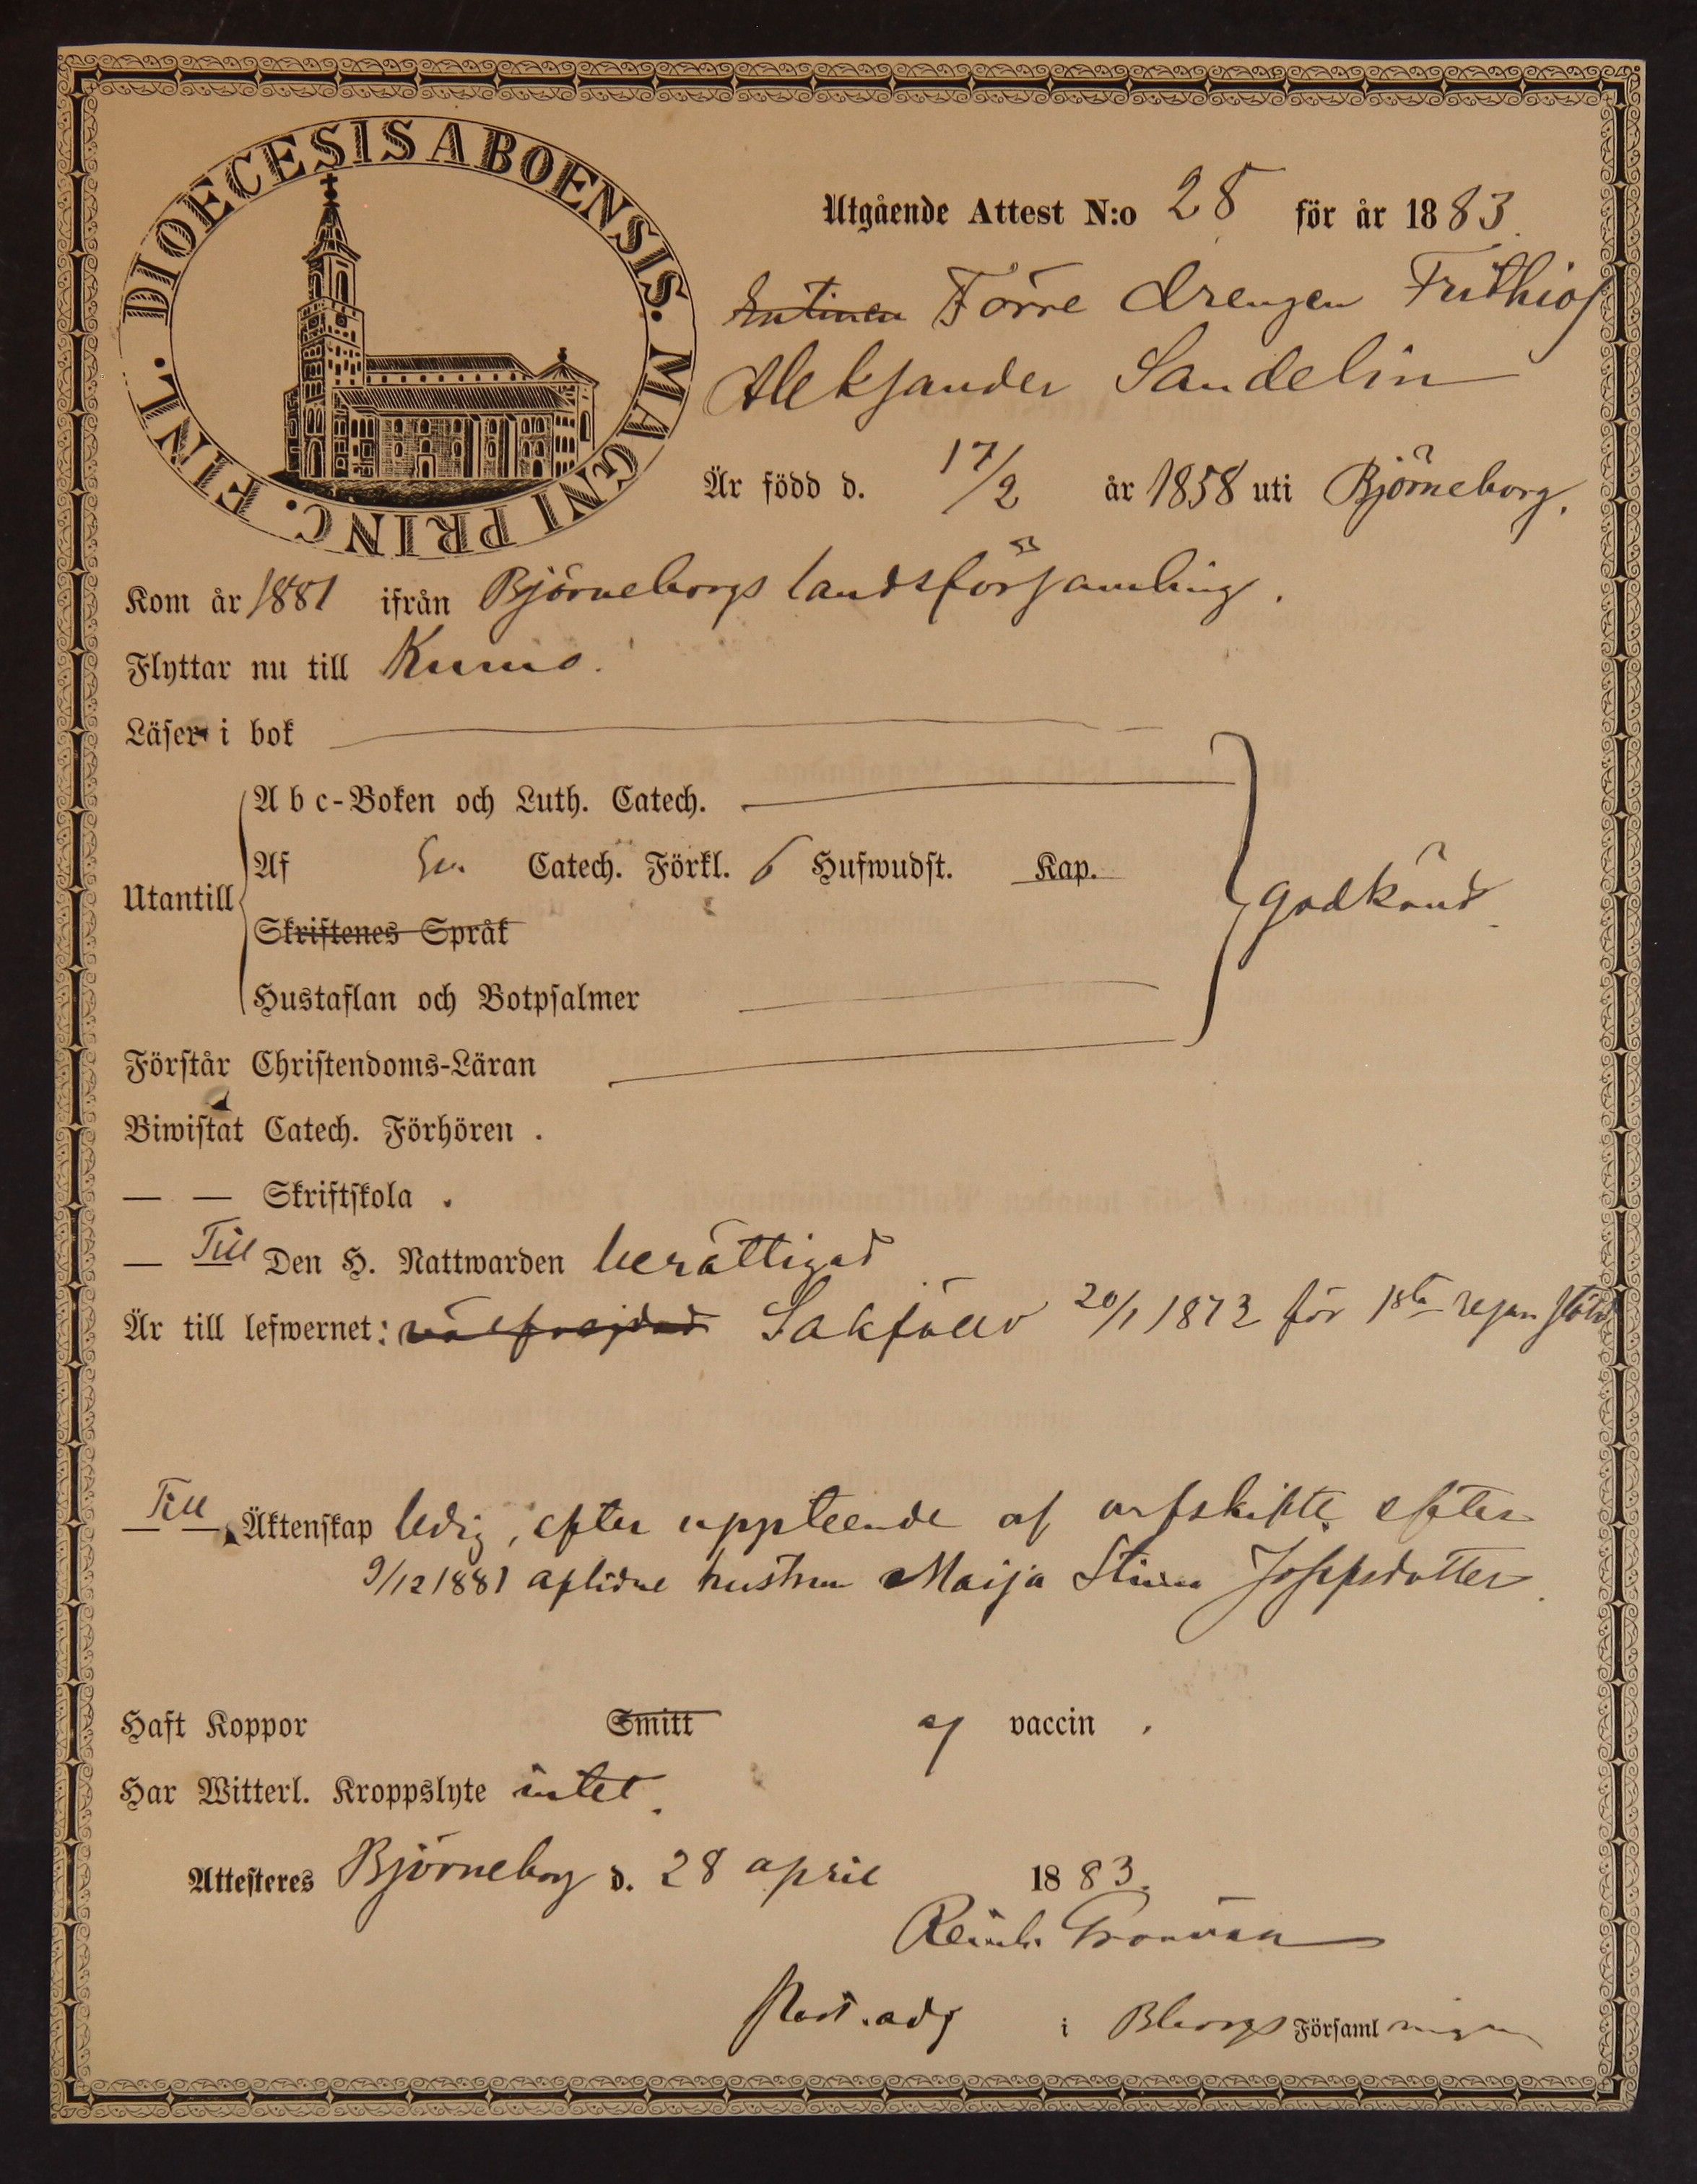 DIOECESIS ABOENSIS. MAGNI PRINC. FINL.
Utgående Attest N:o 28 för år 1883.
Entinen Förre drengen Frithiof
Aleksander Sandelin
Är född d. 17/2 år 1858 uti Björneborg.
Kom år 1881 ifrån Björneborgs landsförsamling.
Flyttar nu till Kumo.
Läser i bok
A b c-Boken och Luth. Catech.
Af Sv. Catech. Förkl. 6 Hufwudst. Kap.
Utantill godkänd.
Skriftenes Språk
Hustaflan och Botpsalmer
Förstår Christendoms-Läran
Biwistat Catech. Förhören .
— — Skriftskola .
— Till Den H. Nattwarden berättigad
Är till lefwernet: välfrejdad Sakfälld 20/1 1873 för 1sta resan stöld
Till Äktenskap ledig, efter uppteende af arfskifte efter
9/12 1881 aflidne hustrun Maija Stina Josefsdotter.
Haft Koppor Smitt af vaccin .
Har Witterl. Kroppslyte intet.
Attesteres Björneborg d. 28 april 1883.
Reinh. Grönvall
Past. adj i Bborgs Församlingen